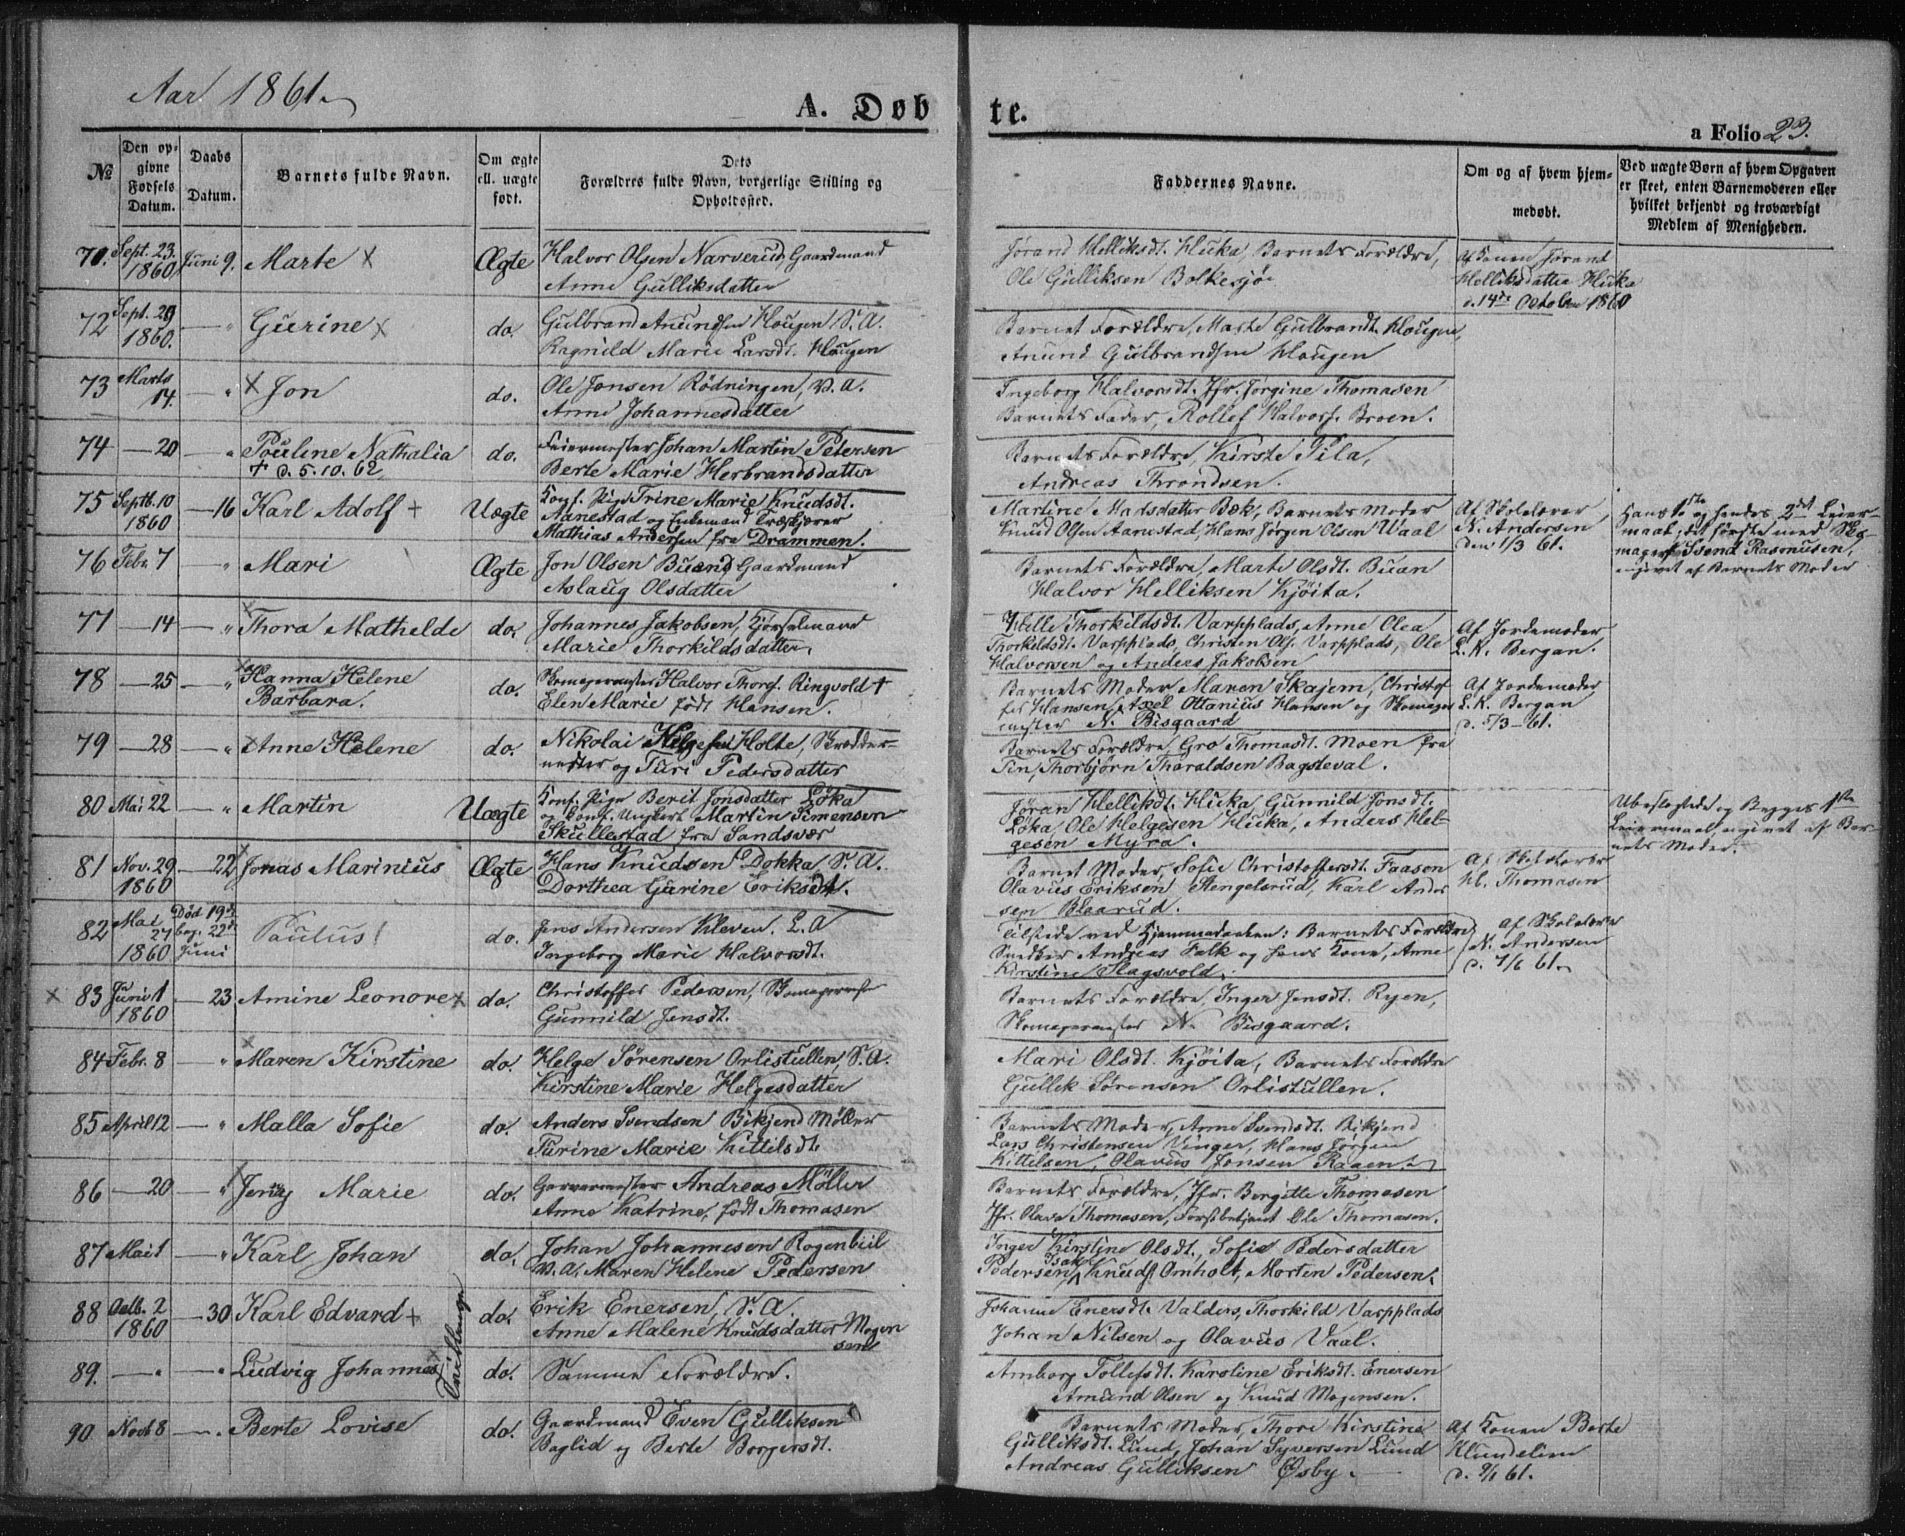 Aar 1861.
A. Døbte.
a Folio 23.
№
Den opgivne Fødsels Datum.
Daabs Datum.
Barnets fulde Navn.
Om ægte ell. uægte født.
Dets Forældres fulde Navn, borgerlige Stilling og Opholdssted.
Faddernes Navne.
Om og af hvem hjemmedøbt.
Ved uægte Børn af hvem Opgaven er skeet, enten Barnemoderen eller hvilket bekjendt og troværdigt Medlem af Menigheden.
71. Sept. 23. 1860 Juni 9. Marte x Ægte Halvor Olsen Narverud, Gaardmand
Anne Gulliksdatter
Jørand Helliksdt. Huka, Barnets Forældre,
Ole Gulliksen Bolkesjø.
Af Konen Jørand
Helliksdatter Huka
d. 14de October 1860
72 Sept. 29 1860. — " Gurine x do. Gulbrand Anundsen Hougen S. A.
Ragnild Marie Larsdt. Hougen
Barnet Forældre, Marte Gulbrandt. Hougen,
Anund Gulbrandsen Hougen
73 Marts 14. — " x Jon do. Ole Jonsen Rødningen, V. A.
Anne Johannesdatter
Ingeborg Halvorsdt. Jfr. Jørgine Thomasen
Barnets Fader, Rollef Halvors. Broen.
74 — 20 " Pouline Nathalia do. Feiermester Johan Martin Petersen
+ d. 5.10.62 Berte Marie Herbrandsdatter
Barnets Forældre, Kirste Pila,
Andreas Throndsen.
75 Septb. 10 1860 — 16 Karl Adolf + Uægte Konf. Pige Trine Marie Knudsdt.
Aanestad og Enkemand Træskjærer
Mathias Andersen fra Drammen.
Martine Madsdatter Bæk, Barnets Moder
Knud Olsen Aanestad, Hans Jørgen Olsen Waal
Af Skolelærer
N. Andersen
den 1/3 61.
Hans 1ste og hendes 2det Leier-
maal, det første med Sko-
mager Svend Rasmusen,
angivet af Barnets Moder
76 Febr. 7 " Mari Ægte Jon Olsen Buand Gaardmand
Aslaug Olsdatter
Barnets Forældre, Marte Olsdt. Buan
Halvor Helliksen Kjøita.
77 — 14 — " x Thora Mathelde do. Johannes Jakobsen, Kjørselmand
Marie Thorkildsdatter,
Ibelle Thorkildsdt. Varpplads, Anne Olea
Thorkildsdt. Varpplads, Christen Ols. Varpplads, Ole
Halvorsen og Anders Jakobsen
Af Jordemoder
L. K. Bergan.
78 — 25 — " x Hanna Helene
Barbara. do. Skomagermester Halvor Thorg. Ringvold +
Elen Marie født Hansen.
Barnets Moder Maren Skajem, Christof
fer Hansen, Axel Ottanius Hansen og Skomager
mester N. Bisgaard
Af Jordemoder
L. K. Bergan
d. 5/3 - 61.
79 — 28 — " x Anne Helene do. Nikolai Helgesen Holte, Skrædder-
mester og Turi Pedersdatter
Barnets Forældre, Gro Thomasdt. Moen fra
Tin, Thorbjørn Tharaldsen Bagsteval.
80 Mai 22 — " Martin Uægte Konf. Pige Berit Jonsdatter Løka
og Konf. Ungkarl Martin Simensen
Skullestad fra Sandsvær
Jøran Helliksdt. Huka, Gunnild Jonsdt.
Løka, Ole Helgesen Huka, Anders Hel-
gesen Myra.
Ubeslægtede og Begges 1ste
Leiermaal, angivet af Bar-
nets Moder.
81 Nov. 29 1860 — 22 x Jonas Marinius Ægte Hans Knudsen Dokka S. A.
Dorthea Gurine Eriksdt.
Barnet Moder, Sofie Christoffersdt. Faasen
Olavus Eriksen Stengelsrud, Karl Ander
sen Blaarud.
Af Skolelærer
H. Thomasen
82 Mai 27 1860 Død 19de beg. 22de Juni Paulus! do. Jens Andersen Kleven, L. A
Ingeborg Marie Halvorsdt.
Tilstede ved Hjemmedaaben: Barnets Forældre,
Snedker Andreas Falk og hans Kone, Anne
Kirstine Slagsvold.
Af Skolelærer
N. Andersen
d. 7/6 61.
x 83 Juni 1 1860 — 23 Amine Leonore x do. Christoffer Pedersen, Skomagermester
Gunnild Jensdt.
Barnets Forældre, Inger Jensdt. Ryen,
Skomagermester N. Bisgaard.
84 Febr. 8 " x Maren Kirstine do. Helge Sørensen Orlistullen, S. A.
Kirstine Marie Helgesdatter
Mari Olsdt. Kjøita, Barnets Forældre
Gullik Sørensen Orlistullen.
85 April 12 — " Malla Sofie do. Anders Svendsen Bikjend Møller
Turine Marie Kittilsdt.
Barnets Moder, Anne Svendsdt. Bikjend
Lars Christensen Vinger, Hans Jørgen
Kittilsen, Olavus Jonsen Raaen.
86 — 20 " x Jenny Marie do. Garvermester Andreas Møller
Anne Katrine, født Thomasen
Barnets Forældre, Jfr. Bergitte Thomasen
Jfr. Olava Thomasen, Forstbetjent Ole Thomasen.
87 Mai 1 — " Karl Johan do. Johan Johannesen Rogenbiil
V. A. Maren Helene Pedersen
Inger Kirstine Olsdt., Sofie Pedersdatter
Isak Pedersen, Knud Omholt, Morten Pedersen.
88 Octb. 2 1860 — 30 Karl Edvard + do. Erik Enersen, S. A.
Anne Malene Knudsdatter Mogen
sen
Tvillinger
Johanne Enersdt. Valders, Thorkild Varpplads
Johan Nilsen og Olavus Vaal.
89. — " " Ludvig Johannes x do. Samme Forældre.
Amborg Tollefsdt. Karoline Eriksdt. Enersen
Amund Olsen og Knud Mogensen.
90 Novb 8 — " Berte Lovise do. Gaardmand Even Gulliksen
Baglid og Berte Borgersdt.
Barnets Moder, Thore Kirstine
Gulliksdt. Lund, Johan Syversen Lund
Andreas Gulliksen Øsby.
Af Konen Berte
Klundelien
d. 9/6 61.